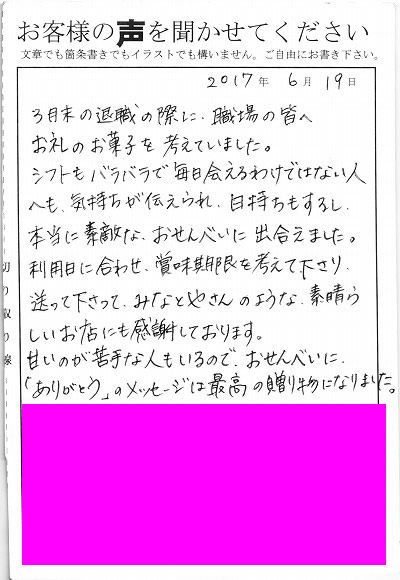 お客様の声を聞かせてください
文章でも箇条書きでもイラストでも構いません。ご自由にお書き下さい。
2017年 6月 19日
3月末の退職の際に、職場の皆へ
お礼のお菓子を考えていました。
シフトもバラバラで毎日会えるわけではない人
へも、気持ちが伝えられ、日持ちもするし、
本当に素敵な、おせんべいに出合えました。
利用日に合わせ、賞味期限を考えて下さり、
送って下さって、みなとやさんのような、素晴ら
しいお店にも感謝しております。
甘いのが苦手な人もいるので、おせんべいに、
「ありがとう」のメッセージは最高の贈り物になりました。
切り取り線